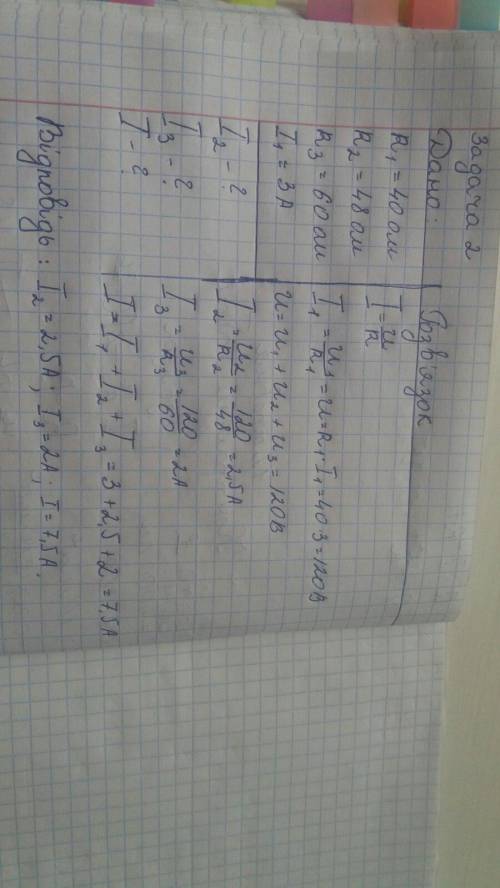 Задача 2
Дано:
R₁ = 40 ом
R₂ = 48 ом
R₃ = 60 ом
I₁ = 3 А
I₂ - ?
I₃ - ?
I - ?
Розв'язок
I = u/R
I₁ = u₁/R₁ = u = R₁·I₁ = 40·3 = 120В
u = u₁ + u₂ + u₃ = 120В
I₂ = u₂/R₂ = 120/48 = 2,5А
I₃ = u₃/R₃ = 120/60 = 2А
I = I₁ + I₂ + I₃ = 3 + 2,5 + 2 = 7,5А
Відповідь: I₂ = 2,5А; I₃ = 2А; I = 7,5А.